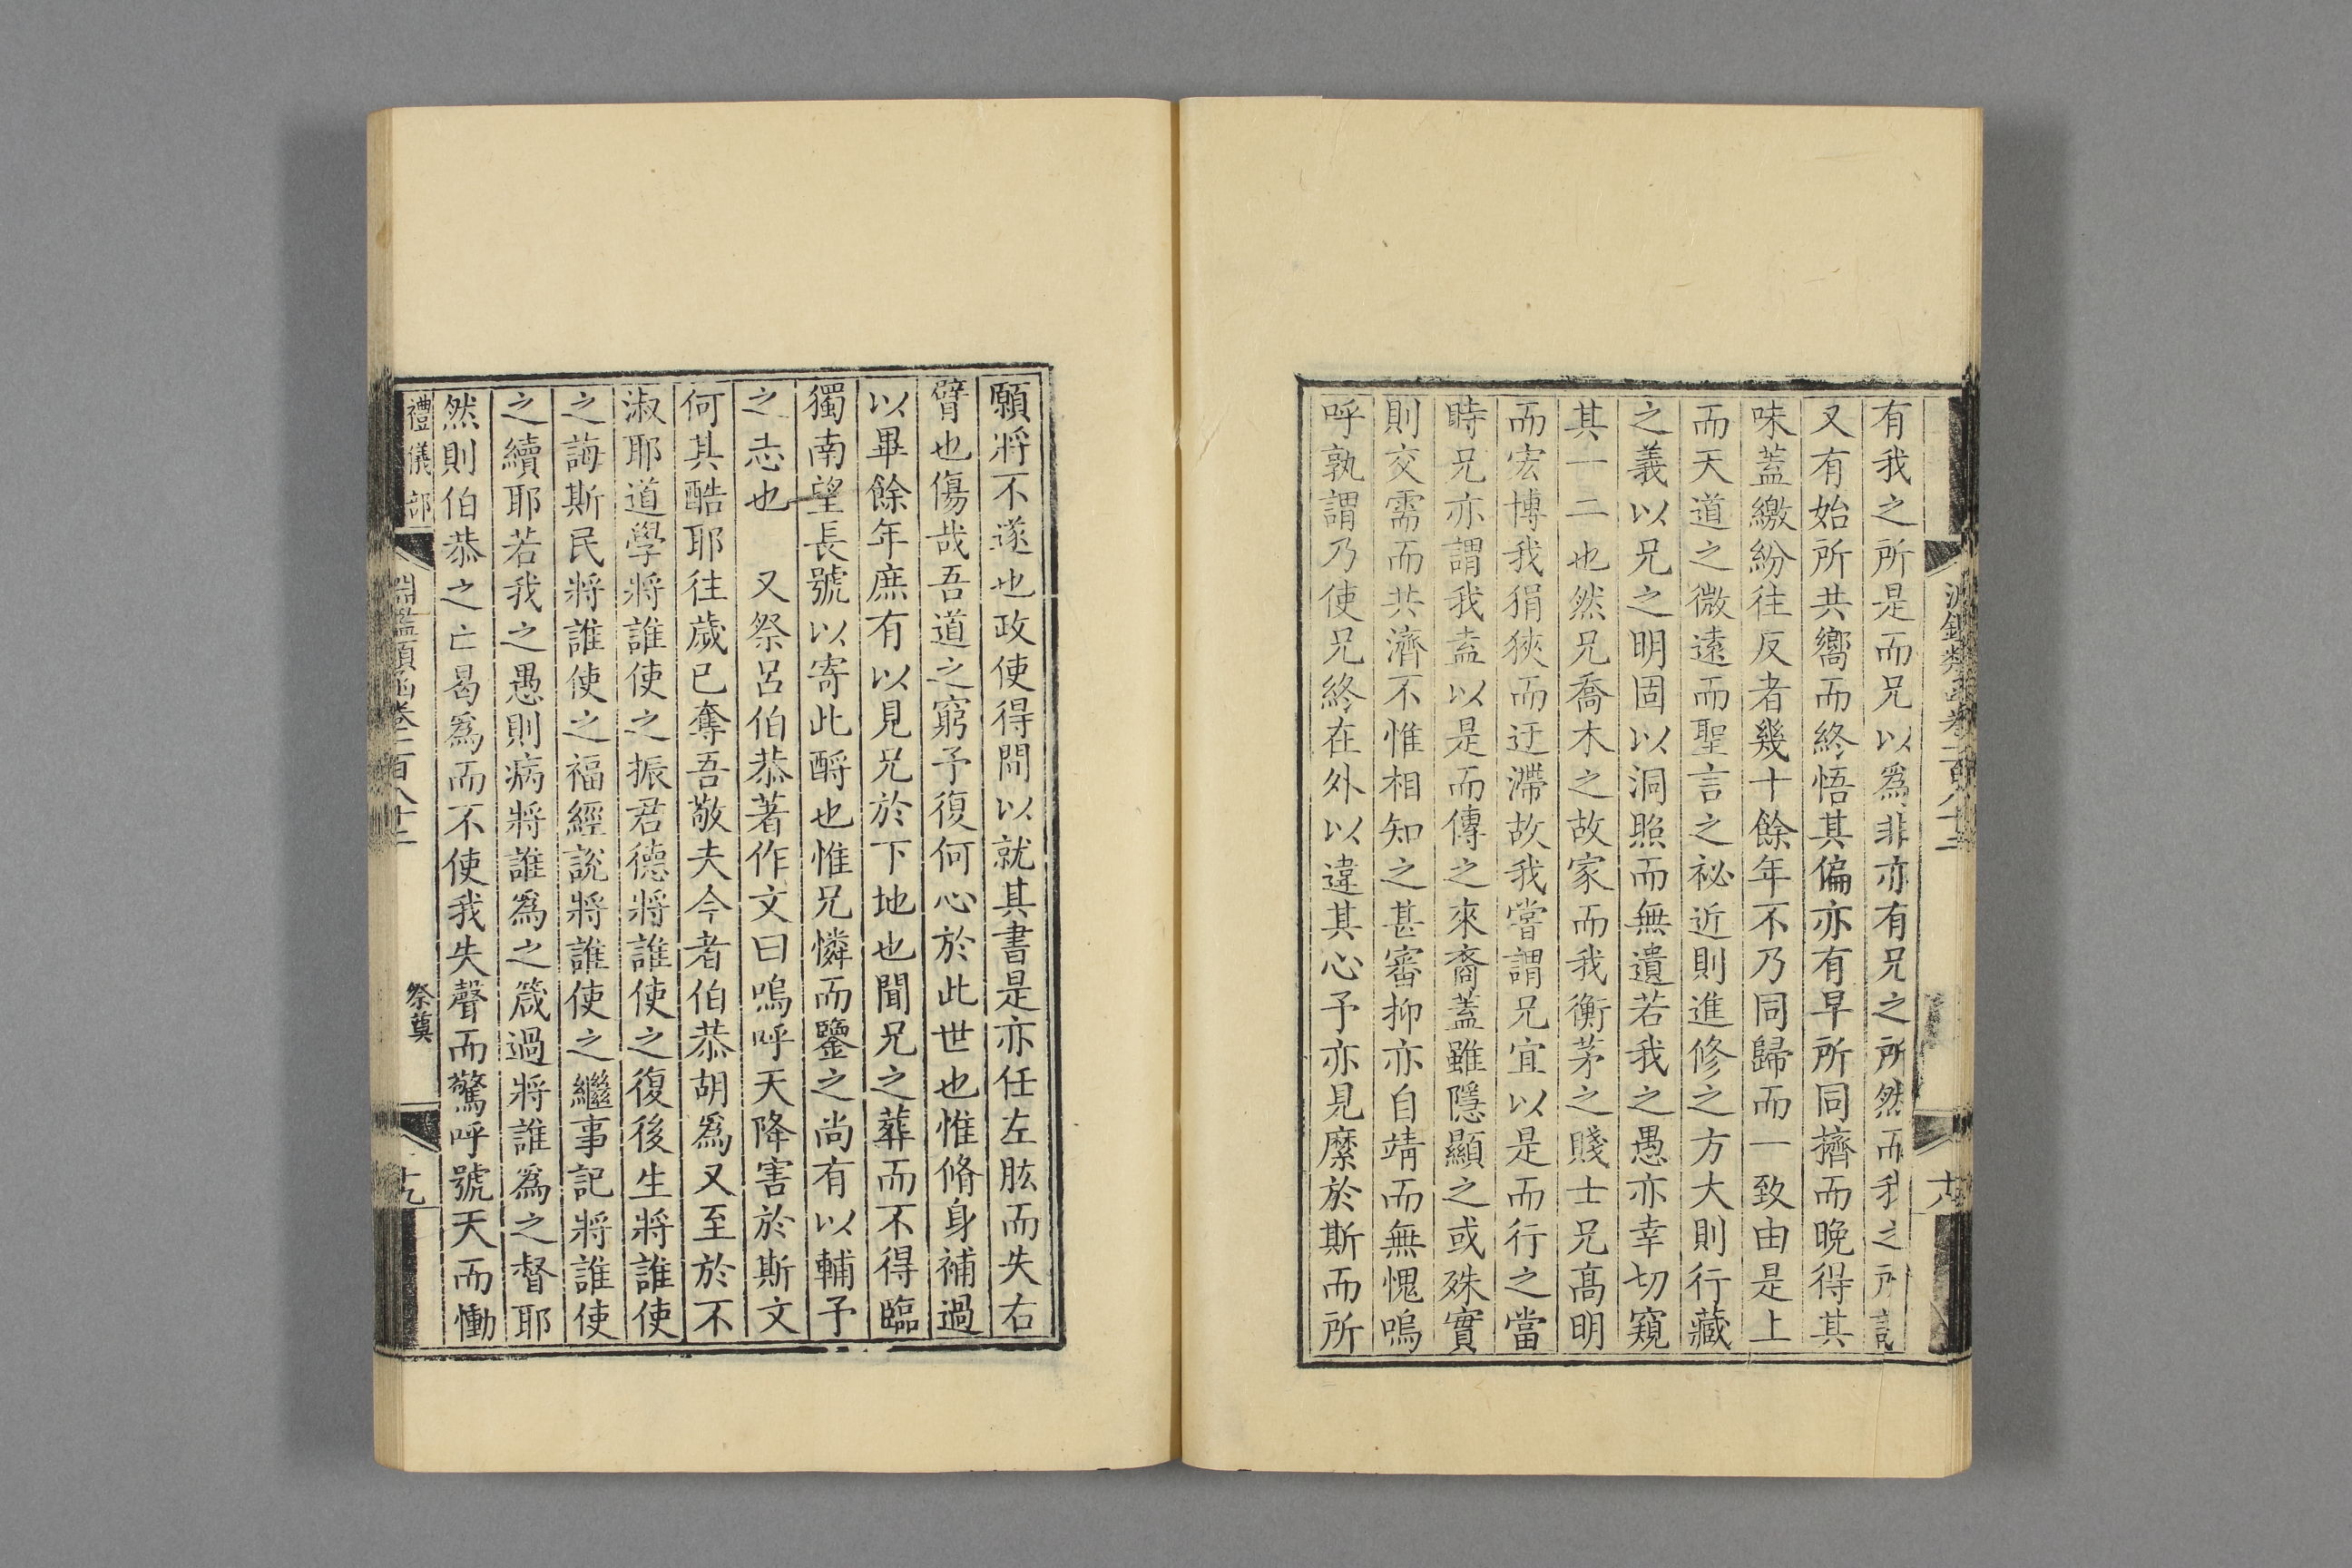 有我之所是而兄以爲非亦有兄之所然而我之所議
又有始所共嚮而終悟其偏亦有早所同擠而晚得其
味蓋繳紛往反者幾十餘年不乃同歸而一致由是上
而天道之微遠而聖言之祕近則進修之方大則行藏
之義以兄之明固以洞照而無遺若我之愚亦幸切窺
其一二也然兄喬木之故家而我衡茅之賤士兄高明
而宏博我狷狹而迂滯故我嘗謂兄宜以是而行之當
時兄亦謂我盍以是而傳之來裔蓋雖隱顯之或殊實
則交需而共濟不惟相知之甚審抑亦自靖而無愧嗚
呼孰謂乃使兄終在外以違其心予亦見縻於斯而所
願將不遂也政使得間以就其書是亦任左肱而失右
臂也傷哉吾道之窮予復何心於此世也惟脩身補過
以畢餘年庶有以見兄於下地也聞兄之葬而不得臨
獨南望長號以寄此酹也惟兄憐而鑒之尚有以輔予
之志也 又祭呂伯恭著作文曰嗚呼天降害於斯文
何其酷耶往歲已奪吾敬夫今者伯恭胡爲又至於不
淑耶道學將誰使之振君德將誰使之復後生將誰使
之誨斯民將誰使之福經說將誰使之繼事記將誰使
之續耶若我之愚則病將誰爲之箴過將誰爲之督耶
然則伯恭之亡曷爲而不使我失聲而驚呼號天而慟
禮儀部 淵鑑類函卷二百八十二 祭奠 十九